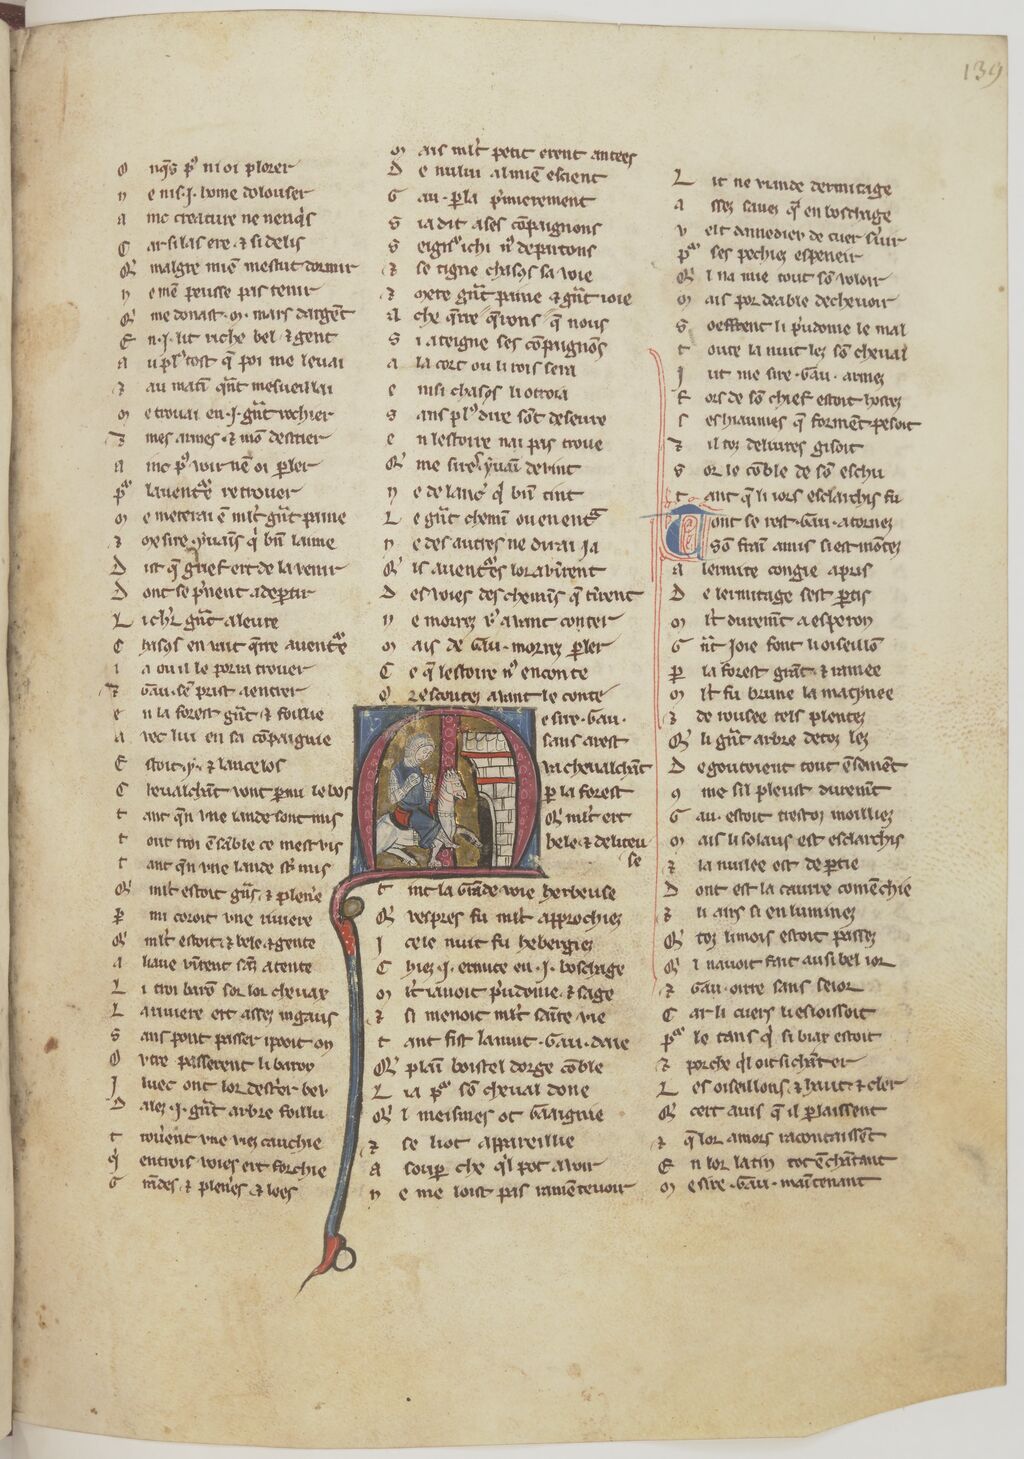 139
O nq̃s pꝰ ni oi plorer
N e nis .i. home dolouser
A inc creature ne nenq̓s
C ar si las ere ⁊ si delis
Q̃ malgre mien mestut dormir
N e men peusse pas tenir
Q̃ me donast .m. mars dargẽt
E n .i. lit riche bel ⁊ gent
A u plꝰ tost q̃ poi me levai
⁊ au matĩ q̃nt mesveillai
M e trovai en .i. gñt rochier
⁊ mes armes ⁊ mõ destrier
A inc pꝰ voir nẽ oi ꝑler
Pᵃ laventᵃ̃e retrover
M e meterai ẽ ml̃t gñt paine
⁊ mesire .yvains q̓ bñ laime
D ist q̃ grief ert de lavenir
D ont se pñent a deꝑtir
L i chr̃ gñt aleure
C hasꝯs en vait q̃rre aventᵃ̃e
L a ou il le porra trover
⁊ Gãu. sẽ prist a entrer
E n la forest gñt ⁊ foillie
A vec lui en sa cõpaignie
E stoit .yv̓. ⁊ lancelos
C hevalchãt vont ꝑmi le bos
T ant q̃n une lande sont mis
T out troi ẽsãble ce mest vis
T ant q̃n une lande st̃ mis
Q̃ ml̃t estoit gñs ⁊ plenie
P mi coroit une riviere
Q̃ ml̃t estoit ⁊ bele ⁊ gente
A liave vĩrent sãz atente
L i troi barõ sor lor chevax
L a riviere ert assez ingaus
S ans pont passer i pooit on
O vtre passerent li baron
I luec ont lor destrier bev
D alez .i. gñt arbre foillu
T rovẽent une viez cauchie
Q̓ en trois voies ert forchie
G rãdes ⁊ plenies ⁊ lees
M ais ml̃t petit erent antees
D e nului al mien escient
G au. ꝑla p̓mierement
S i a dit a ses cõpaignons
S eignꝰ ichi nꝰ departons
⁊ se tigne chasꝯs sa voie
⁊ mete gñt paine ⁊ gñt ioie
A che q̃rre q̃rons q̃ nous
S i ateigne ses cõpaignõs
A la cort ou li rois sera
E nsi chasꝯs li otroia
S ans plꝰ dire sõt desevre
E n lestoire nai pas trove
Q̃ me sires yvaĩ devint
N e de lanc̓ q̓ bñ tint
L e gñt chemĩ ou en entᵃ
N e des autres ne dirai ia
Q̃ is aventᵉ̃s lor avĩrent
D es voies des chemĩs q̃ tĩrent
N e morrez vꝰ avant conter
M ais de Gãu. morrez ꝑler
C e q̃ lestoire nꝰ en conte
O ⁊ escoutez avant le conte
M e sire .Gãu.
sans arest
Va chevalchãt
ꝑ la forest
Q̃ ml̃t ert
bele ⁊ deliteu
se
T int la grãde voie herbeuse
Q̃ vespres fu ml̃t approchiez
I cele nuit fu hebergiez
C hiez .i. ermite en .i. boschage
M l̃t iavoit p̓udome ⁊ sage
⁊ si menoit ml̃t sãte vie
T ant fist lanuit .Gãu. daie
Q̃ plaĩ boistel dorge cõble
L i a pᵃ sõ cheval done
Q̃ l meismes ot gãaignie
⁊ se li ot appareillie
A souꝑ che q̓l pot avoir
N e me loist pas ramẽtevoir
L it ne viande dermitage
A ssez savez q̃ en boschage
V eit damnedieu de cuer s̓vir
Pᵃ ses pechiez espeneir
Q̃ l na mie tout sõ voloir
M ais por deable dechevoir
S oeffrent li p̓udome le mal
T oute la nuit lez sõ cheval
I ut me sire .Gãu. armez
F ors de sõ chief estoit hostez
L es hiaumes q̃ formẽt pesoit
⁊ il toz delivres gisoit
S or le cõble de sõ escu
T ant q̃ li iors esclarchis fu
Tont se rest .Gãu. atornez
A sõ fraĩ amis si est mõtez
A lermite congie a pris
D e lermitage sest ꝑtis
M l̃t duremt̃ a esperon
G ñt ioie font li oiseillõ
P la forest grãt ⁊ ramee
M l̃t fu brune la matinee
⁊ de rousee tels plentez
Q̃ li gñt arbre de toz lez
D egoutoient tout ẽsemẽt
9 me sil pleust duremt̃
G au. estoit trestoz moilliez
M ais li solaus est esclarchis
⁊ la nuslee est de ꝑtie
D ont est la caurre comẽchie
⁊ li airs si enluminez
Q̃ toz li mois estoit passez
Q̃ l navoit fait ausi bel ior
⁊ Gãu. oirre sans seior
C ar li cuers li esioissoit
Pᵃ le tans q̓ si biax estoit
⁊ por che q̓l oit si chãter
L es oiseillons ⁊ haut ⁊ cler
Q̃ cert avis q̃ il ꝑlaissent
⁊ q̃ lor amors racontaissẽt
E n lor latin tot ẽchãtant
M e sire .Gãu. maĩtenant